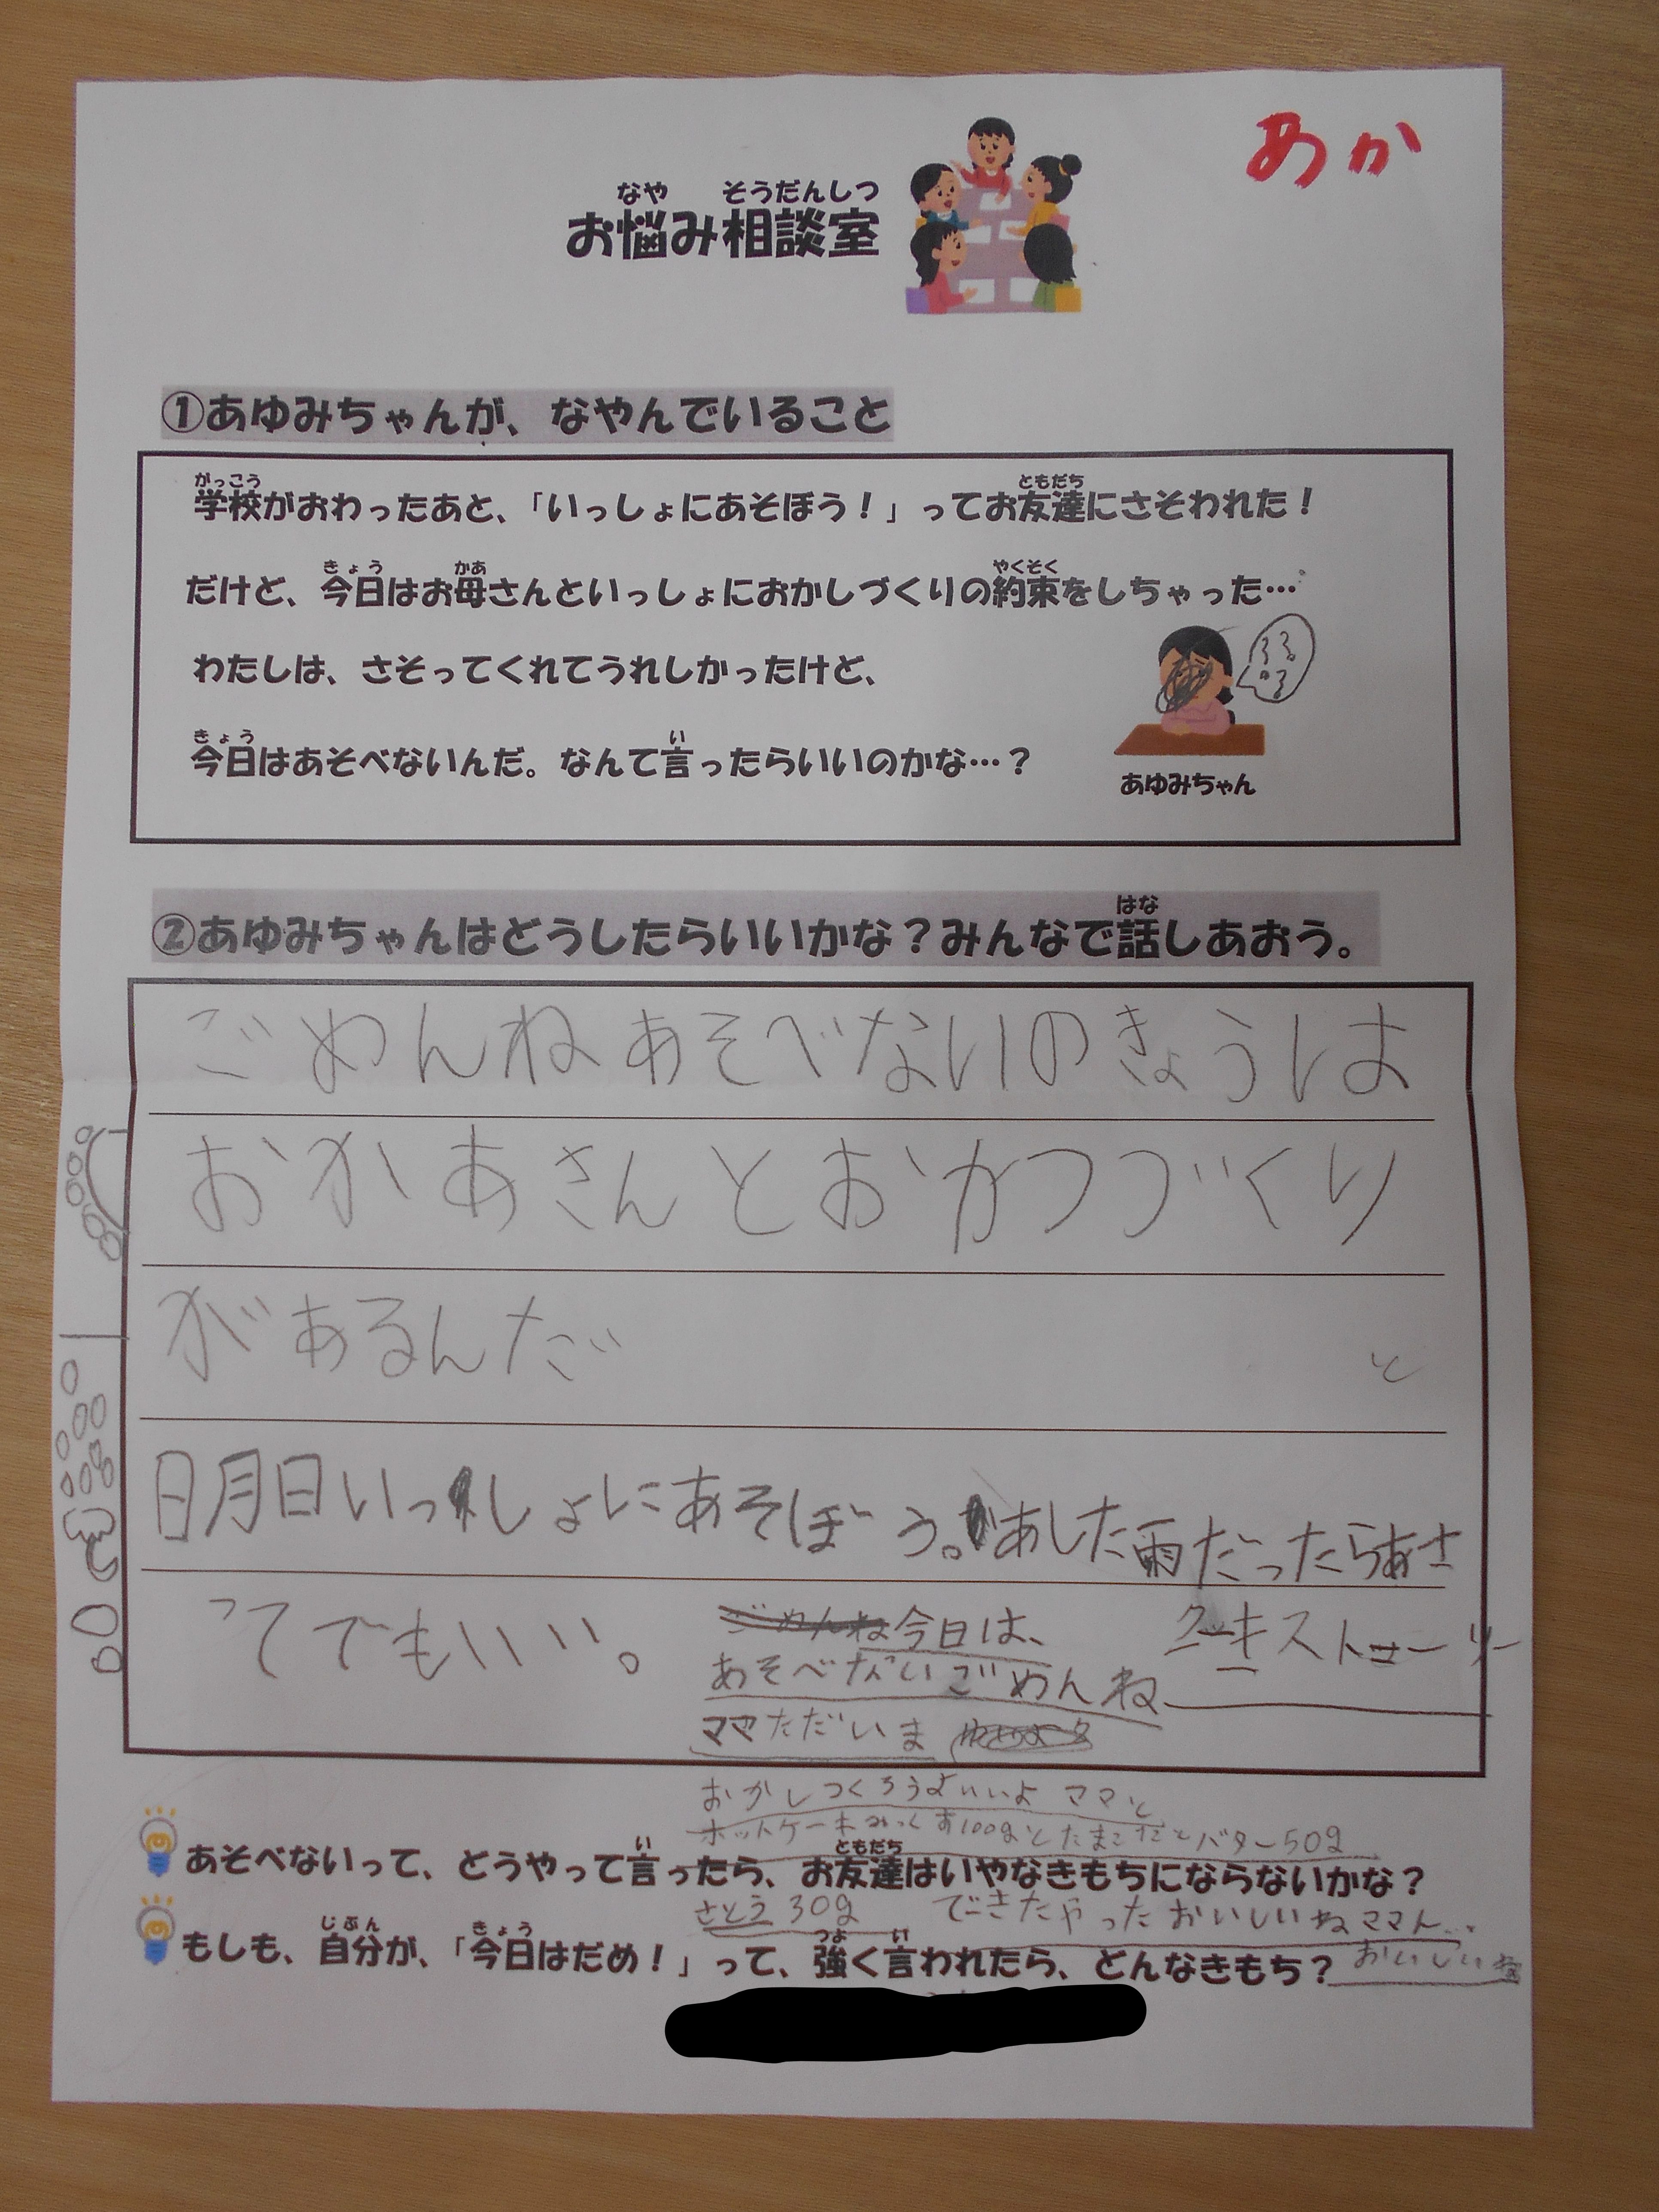 あか
なや そうだんしつ
お悩み相談室
①あゆみちゃんが、なやんでいること
がっこう ともだち
学校がおわったあと、「いっしょにあそぼう！」ってお友達にさそわれた！
きょう かあ やくそく
だけど、今日はお母さんといっしょにおかしづくりの約束をしちゃった…
わたしは、さそってくれてうれしかったけど、
きょう い
今日はあそべないんだ。なんて言ったらいいのかな…？
あゆみちゃん
はな
②あゆみちゃんはどうしたらいいかな？みんなで話しあおう。
ごめんねあそべないのきょうは
おかあさんとおかつづくり
があるんだ
と
日月日いっしょにあそぼう。あした雨だったらあさ
ってでもいい。
ごめんね今日は、
あそべないごめんね
ママただいま
おかしつくろうよいいよ ママと
ホットケーキみっくす100gとたまごとバター50g
い ともだち
あそべないって、どうやって言ったら、お友達はいやなきもちにならないかな？
さとう 30g できたやったおいしいねママ
じぶん きょう つよ い
もしも、自分が、「今日はだめ！」って、強く言われたら、どんなきもち？
おいしいね